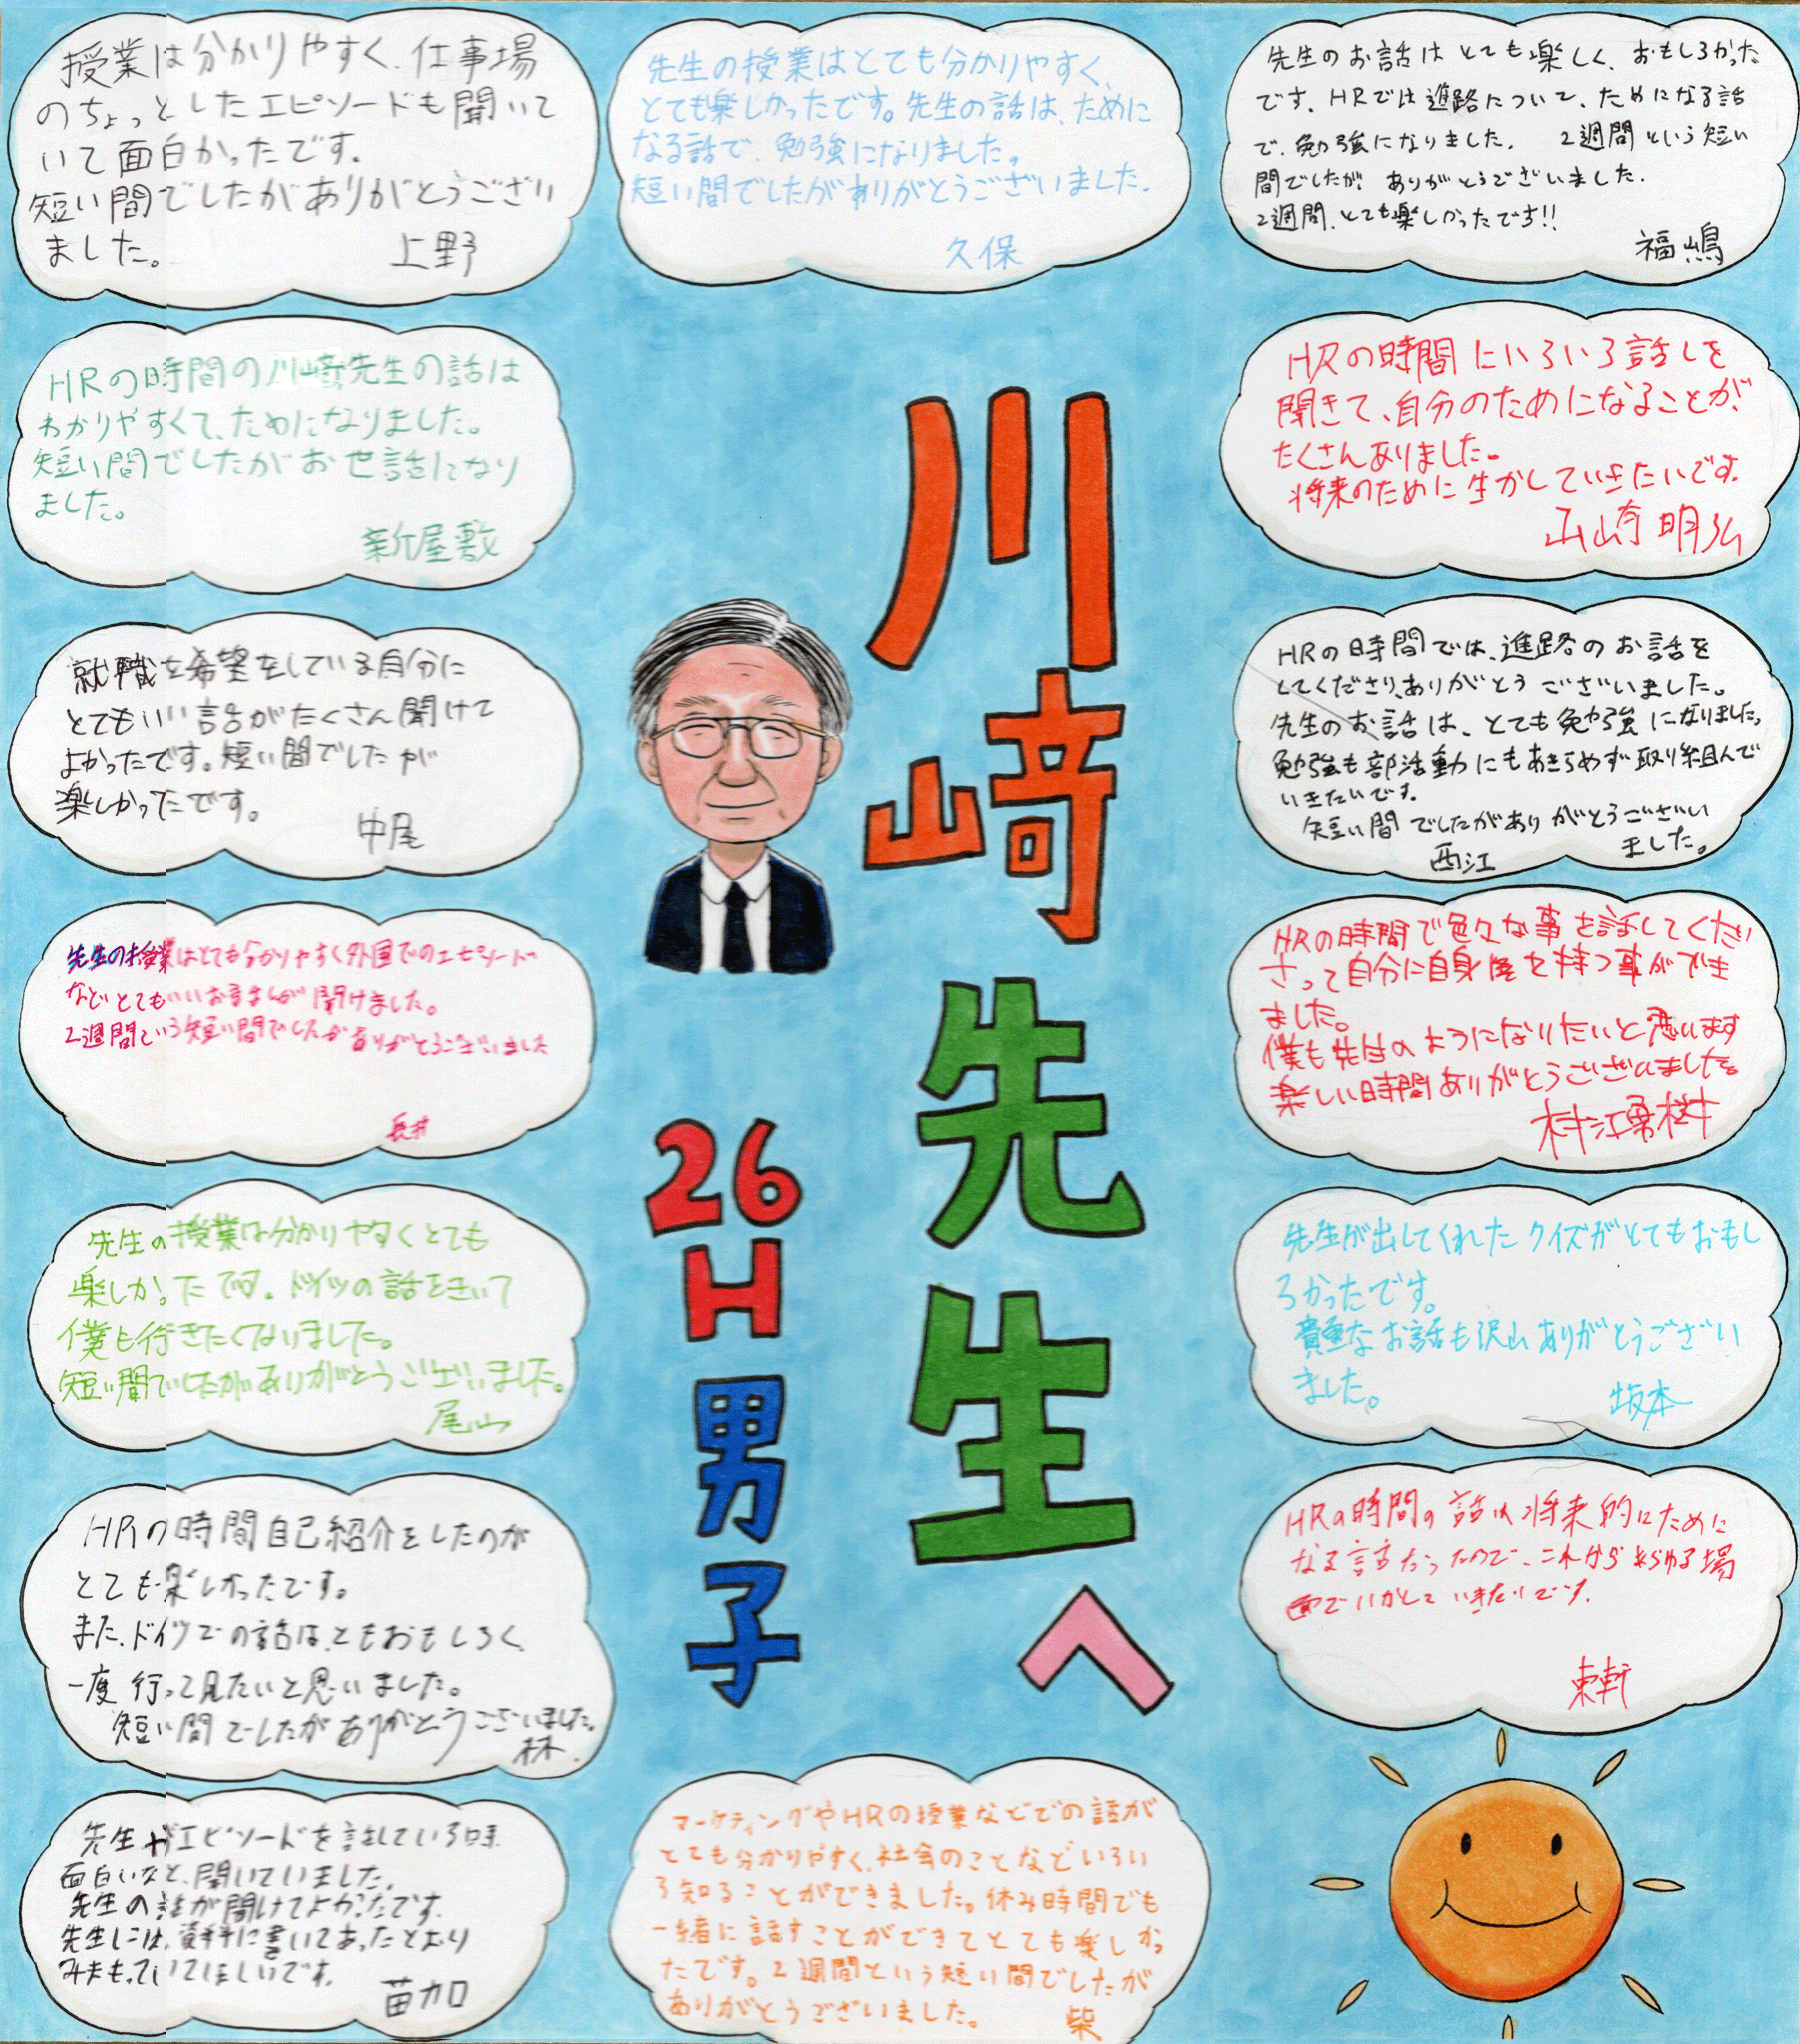 授業は分かりやすく、仕事場
のちょっとしたエピソードも聞いて
いて面白かったです。
短い間でしたがありがとうござい
ました。
上野
先生の授業はとても分かりやすく、
とても楽しかったです。先生の話は、ために
なる話で、勉強になりました。
短い間でしたがありがとうございました。
久保
先生のお話はとても楽しく、おもしろかった
です、HRでは進路について、ためになる話
で、勉強になりました。 2週間という短い
間でしたが、ありがとうございました。
2週間、とても楽しかったです!!
福嶋
HRの時間の川崎先生の話は
わかりやすくて、ためになりました。
短い間でしたがお世話になり
ました。
新屋敷
HRの時間にいろいろ話しを
聞きて、自分のためになることが、
たくさんありました。
将来のために生かしていきたいです。
山崎明弘
就職を希望をしている自分に
とてもいい話がたくさん聞けて
よかったです。短い間でしたが
楽しかったです。
中尾
HRの時間では、進路のお話を
してくださり、ありがとうございました。
先生のお話は、とても勉強になりました。
勉強も部活動にもあきらめず取り組んで
いきたいです。
短い間でしたがありがとうござい
ました。
西江
先生の授業はとても分かりやすく外国でのエピソード
などとてもいいお話しが聞けました。
2週間でいう短い間でしたがありがとうございました
長井
HRの時間で色々な事を話してくださ
さって自分に自身を持つ事ができ
ました。
僕も先生のようになりたいと思います
楽しい時間ありがとうございました。
村江勇樹
先生の授業は分かりやすくとても
楽しかったです。ドイツの話をきいて
僕も行きたくなりました。
短い間でしたがありがとうございました。
尾山
先生が出してくれたクイズがとてもおもし
ろかったです。
貴重なお話も沢山ありがとうござい
ました。
坂本
HRの時間自己紹介をしたのが
とても楽しかったです。
また、ドイツでの話は、ともおもしろく、
一度行って見たいと思いました。
短い間でしたがありがとうございました。
林
HRの時間の話は将来的にために
なる話だったので、これからあらゆる場
面でいかして いきたいです。
東軒
先生がエピソードを話している時、
面白いなと、聞いていました。
先生の話が聞けてよかったです。
先生には、資料に書いてあったとおり
みまもっていてほしいです。
苗加
マーケティングやHRの授業などでの話が
とても分かりやすく、社会のことなどいろい
ろ知ることができました。休み時間でも
一緒に話すことができてとても楽しかっ
たです。2週間という短い間でしたが
ありがとうございました。
柴
川崎先生へ
26H男子